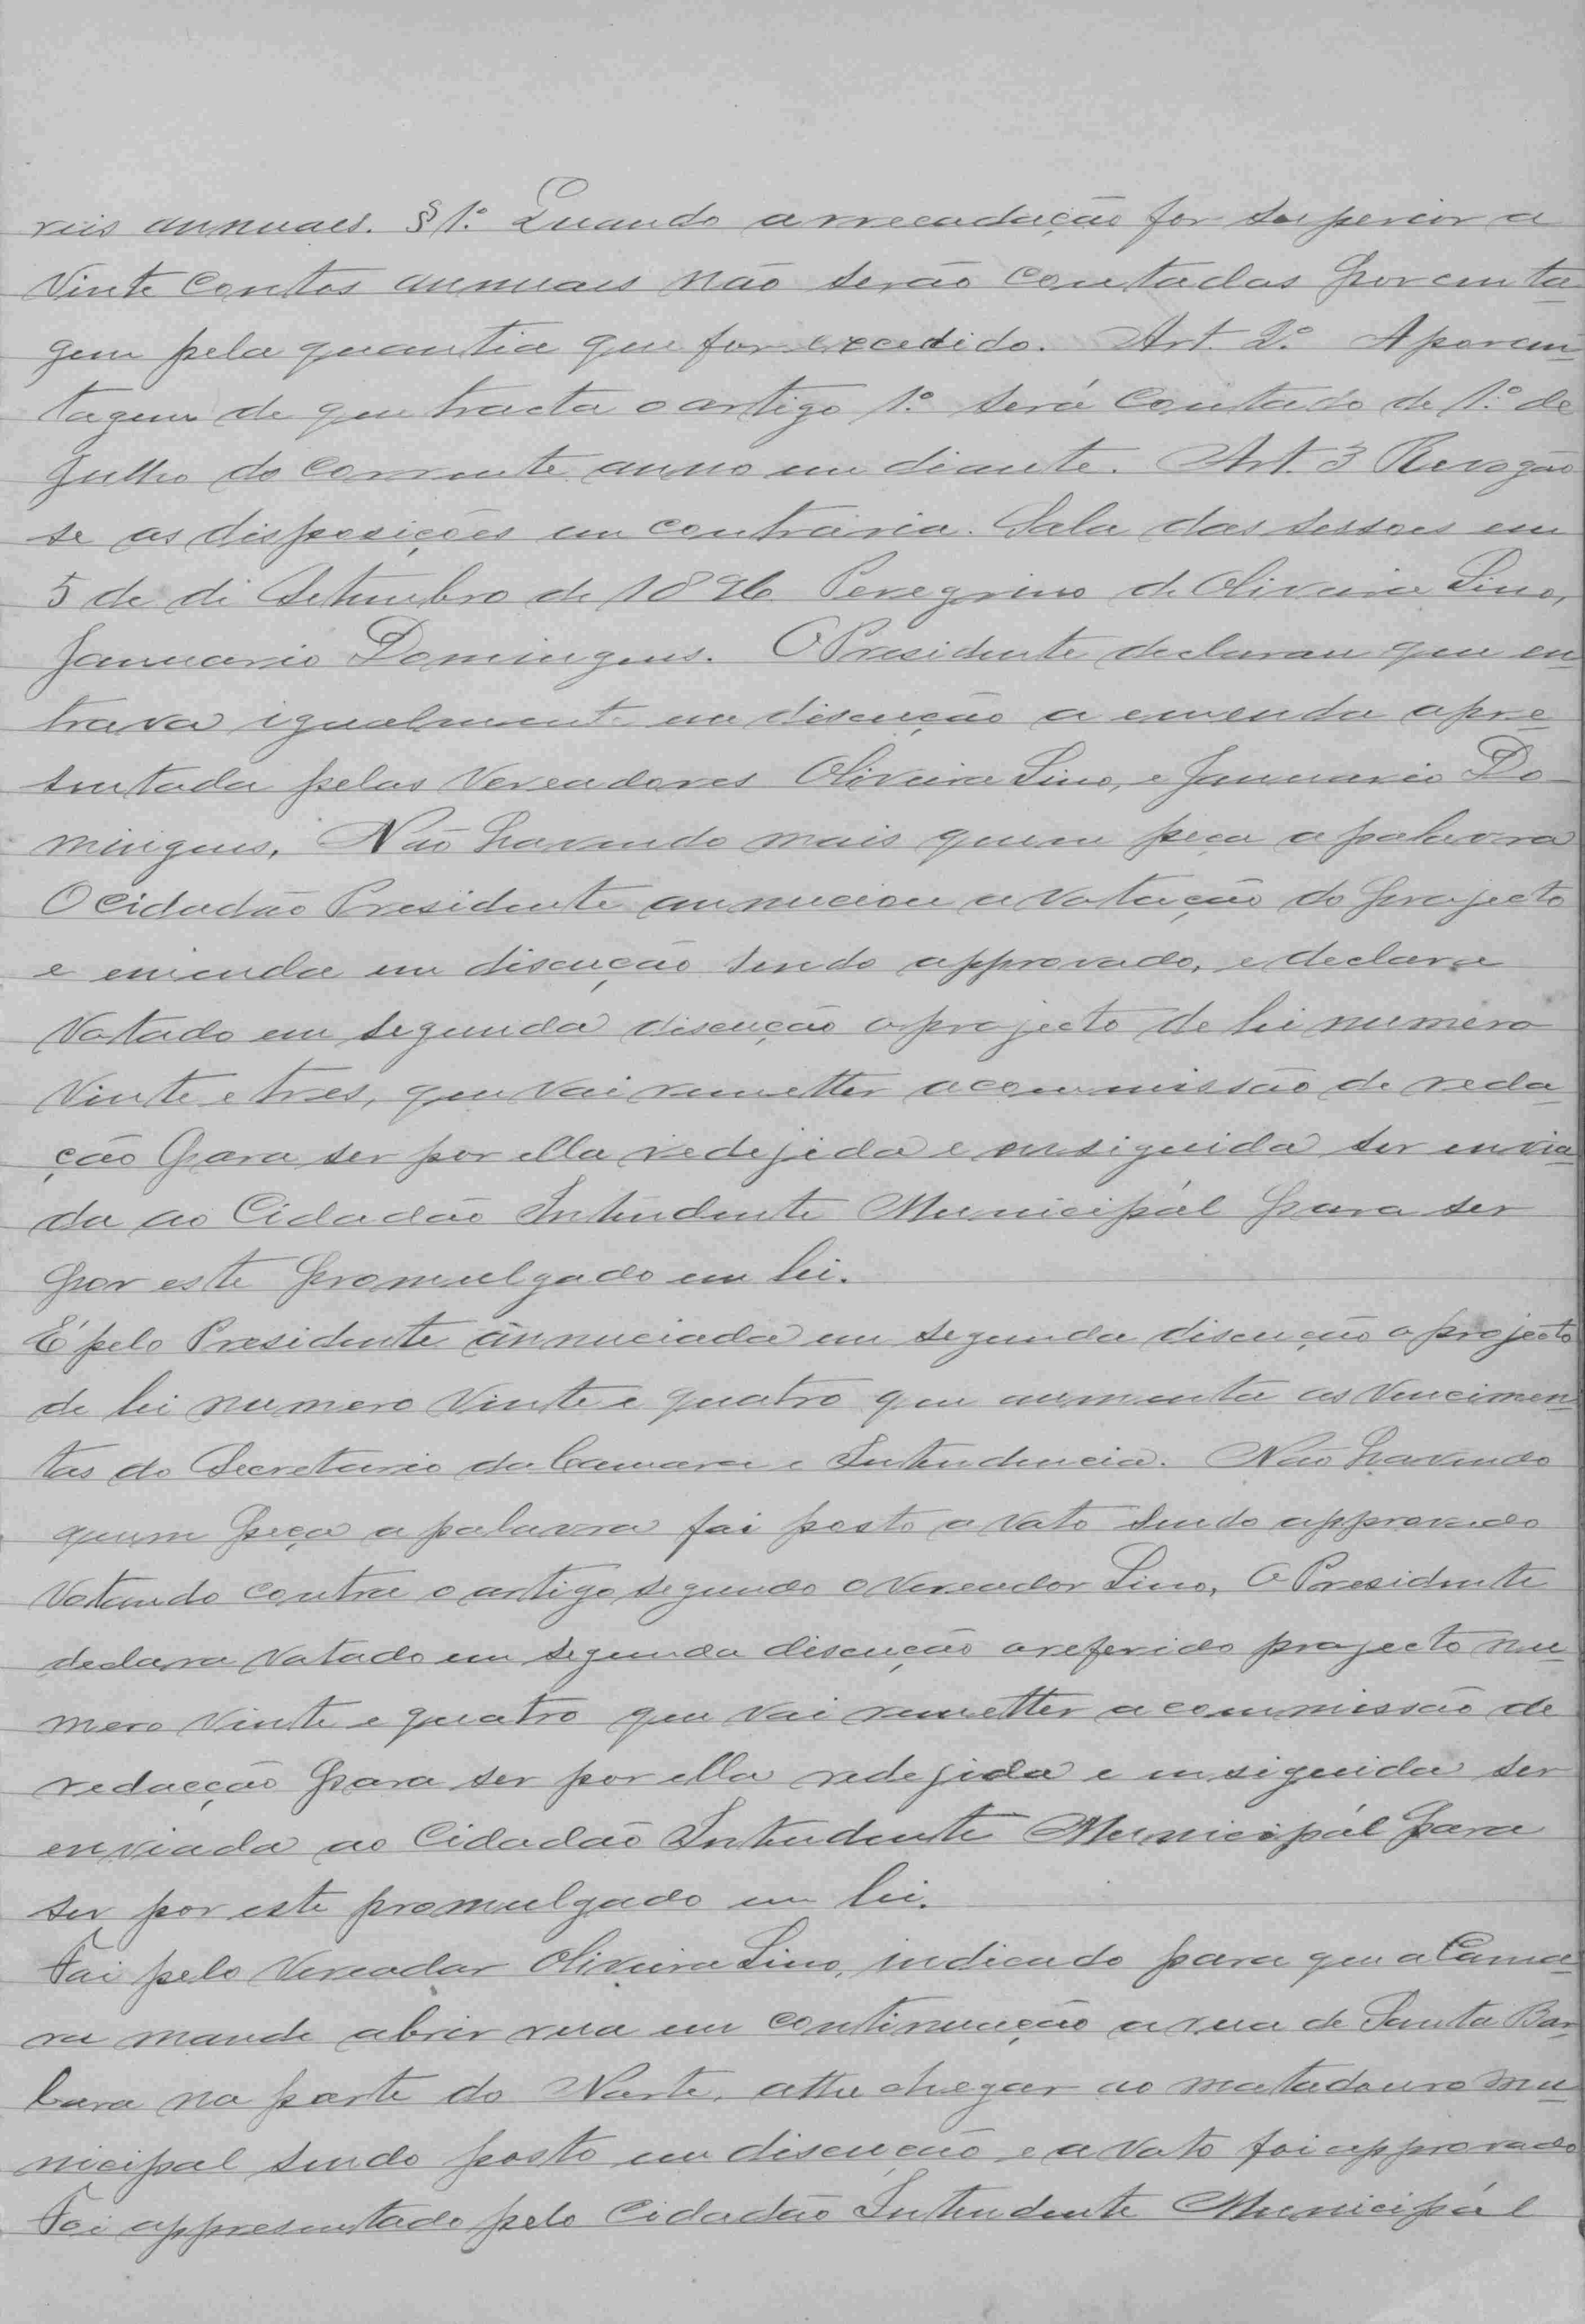 reis annuaes. § 1.º Quando arrecadação for superior a
vinte contos annuais não serão contadas porcenta-
gem pela quantia que for excedido. Art. 2.º A porcen-
tagem de que tracta o artigo 1.º será contado de 1.º de
Julho do corrente anno em diante. Art. 3 Revogão
se as disposições em contraria. Sala das sessoes em
5 de di Setembro de 1896 Peregrino de Oliveira Lino,
Januario Domingues. O Presidente declarau que en-
trava igualmente em discução a emenda apre-
sentada pelos Vereadores Oliveira Lino, e Januario Do-
mingues, Não havendo mais quem peça a palavra
O Cidadão Presidente annuciou a votação do projecto
e emenda em discução sendo approvado, e declara
votado em segunda discução o projecto de lei numero
vinte e tres, que vai remetter a commissão de reda-
ção para ser por ella redejida e ensiguida ser envia-
da ao Cidadão Intendente Municipál para ser
por este promulgado em lei.
É pelo Presidente annuciada em segunda discução o projecto
de lei numero vinte e quatro que aumenta os vencimen-
tos do Secretario da Camara e Intendencia. Não havendo
quem peça a palavra foi posto a voto sendo approvado
votando contra o artigo segundo o vereador Lino, O Presidente
declara votado em segunda discução o referido projecto nu-
mero vinte e quatro que vai remetter a commissão de
redacção para ser por ella redejida e ensiguida ser
enviada ao Cidadão Intendente Municipál para
ser por este promulgado em lei.
Foi pelo Vereador Oliveira Lino, indicado para que a Cama-
ra mande abrir rua em continuação a rua de Santa Bar-
bara na parte do Norte, athe chegar ao matadouro mu-
nicipal sendo posto em discução e a voto foi approvado
Foi appresentado pelo Cidadão Intendente Municipál